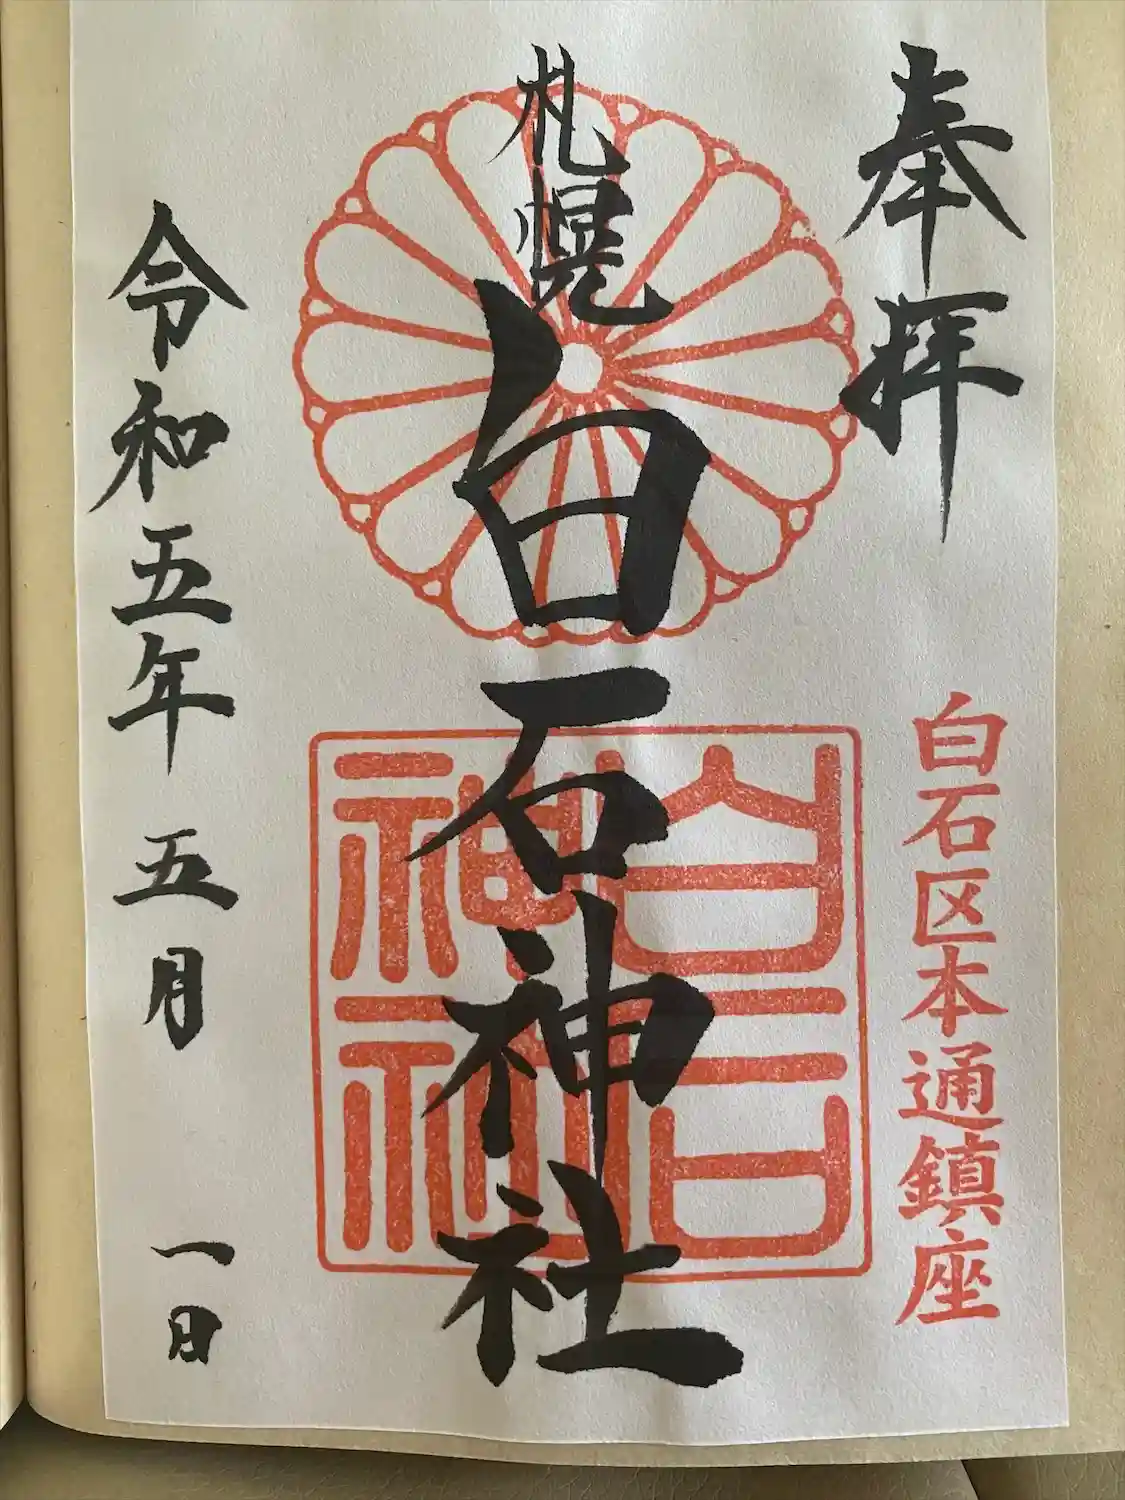 奉拝
白石区本通鎮座
札幌
白石神社
白石神社
令和五年五月一日